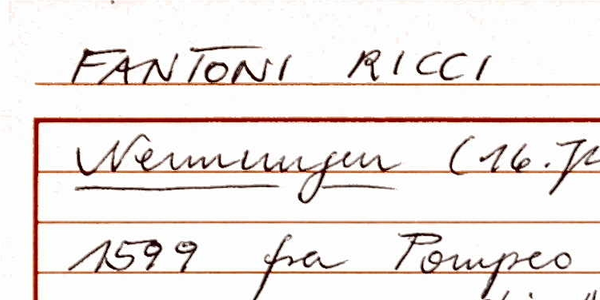 FANTONI RICCI
Nennungen (16.
1599 fra Pompeo